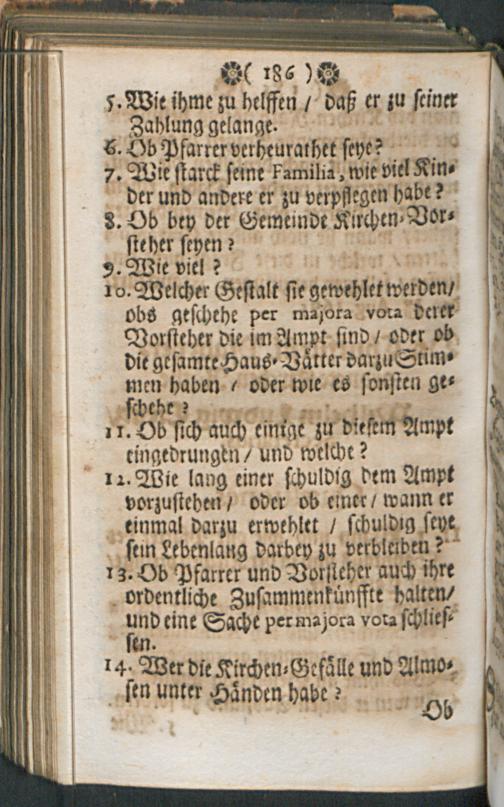 ❁( 186 )❁
5. Wie ihme zu helffen / daß er zu seiner
Zahlung gelange.
6. Ob Pfarrer verheurathet seye?
7. Wie starck seine Familia, wie viel Kin-
der und andere er zu verpflegen habe?
8. Ob bey der Gemeinde Kirchen-Vor-
steher seyen?
9. Wie viel?
10. Welcher Gestalt sie gewehlet werden/
obs geschehe per majora vota derer
Vorsteher die im Ampt sind / oder ob
die gesamte Haus-Vätter darzu Stim-
men haben / oder wie es sonsten ge-
schehe?
11. Ob sich auch einige zu diesem Ampt
eingedrungen / und welche?
12. Wie lang einer schuldig dem Ampt
vorzustehen / oder ob einer / wann er
einmal darzu erwehlet / schuldig seye
sein Lebenlang darbey zu verbleiben?
13. Ob Pfarrer und Vorsteher auch ihre
ordentliche Zusammenkünffte halten/
und eine Sache per majora vota schlies-
sen.
14. Wer die Kirchen-Gefälle und Almo-
sen unter Händen habe?
Ob